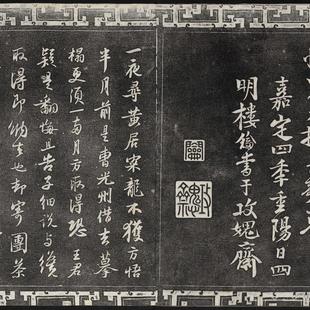 嘉定四年重陽日四
明樓鑰書于攻媿齋
一夜尋黃居寀龍不獲方悟
半月前是曹光州借去摹
搨更須一兩月方取得恐王君
疑是翻悔且告子細說與纔
取得即納去也却寄團茶